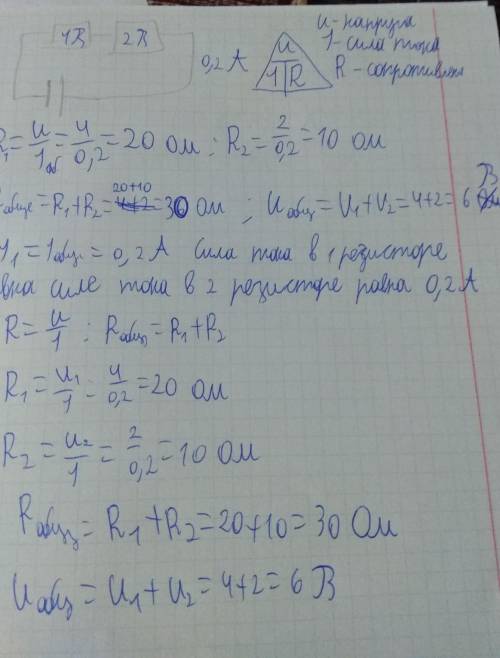 4В 2В 0,2 А
U I R
U - напруга
I - сила тока
R -
R₁ = U/Iоб = 4/0,2 = 20 Ом ; R₂ = 2/0,2 = 10 Ом
= R₁ + R₂ = 20+10 = 30 Ом ; Uобщ = U₁ + U₂ = 4+2 = 6 В
I₁ = Iобщ = 0,2 А сила тока в 1 резисторе
силе тока в 2 резисторе равна 0,2 А
R = U/I ; Rобщ = R₁ + R₂
R₁ = U₁/I = 4/0,2 = 20 Ом
R₂ = U₂/I = 2/0,2 = 10 Ом
Rобщ = R₁ + R₂ = 20+10 = 30 Ом
Uобщ = U₁ + U₂ = 4+2 = 6 В